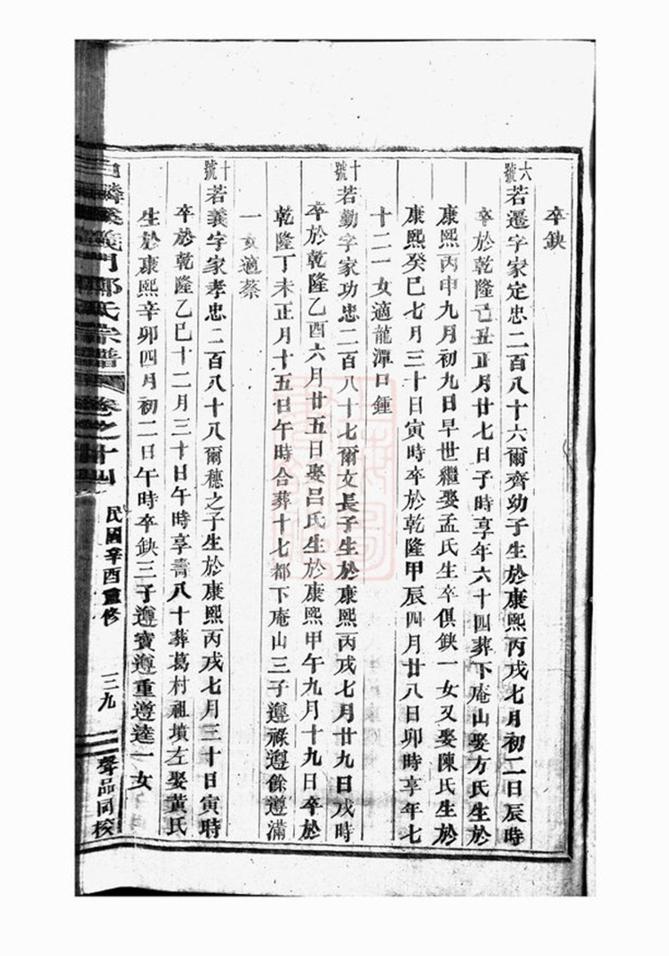 卒缺
六號
若遷字家定忠二百八十六爾齊幼子生於康熙丙戌七月初二日辰時
卒於乾隆己丑正月廿七日子時享年六十四葬下庵山娶方氏生於
康熙丙申九月初九日早世繼娶孟氏生卒俱缺一女又娶陳氏生於
康熙癸巳七月三十日寅時卒於乾隆甲辰四月廿八日卯時享年七
十二一女適龍潭口鍾
十號
若勤字家功忠二百八十七爾文長子生於康熙丙戌七月廿九日戌時
卒於乾隆乙酉六月廿五日娶呂氏生於康熙甲午九月十九日卒於
乾隆丁未正月十五日午時合葬十七都下庵山三子遵祿遵餘遵滿
一女適蔡
十號
若義字家孝忠二百八十八爾穗之子生於康熙丙戌七月三十日寅時
卒於乾隆乙巳十二月三十日午時享壽八十葬葛村祖墳左娶黃氏
生於康熙辛卯四月初二日午時卒缺三子遵寶遵重遵達一女
義門鄭氏宗譜 卷之十四 民國辛酉重修 三九 聲品同校